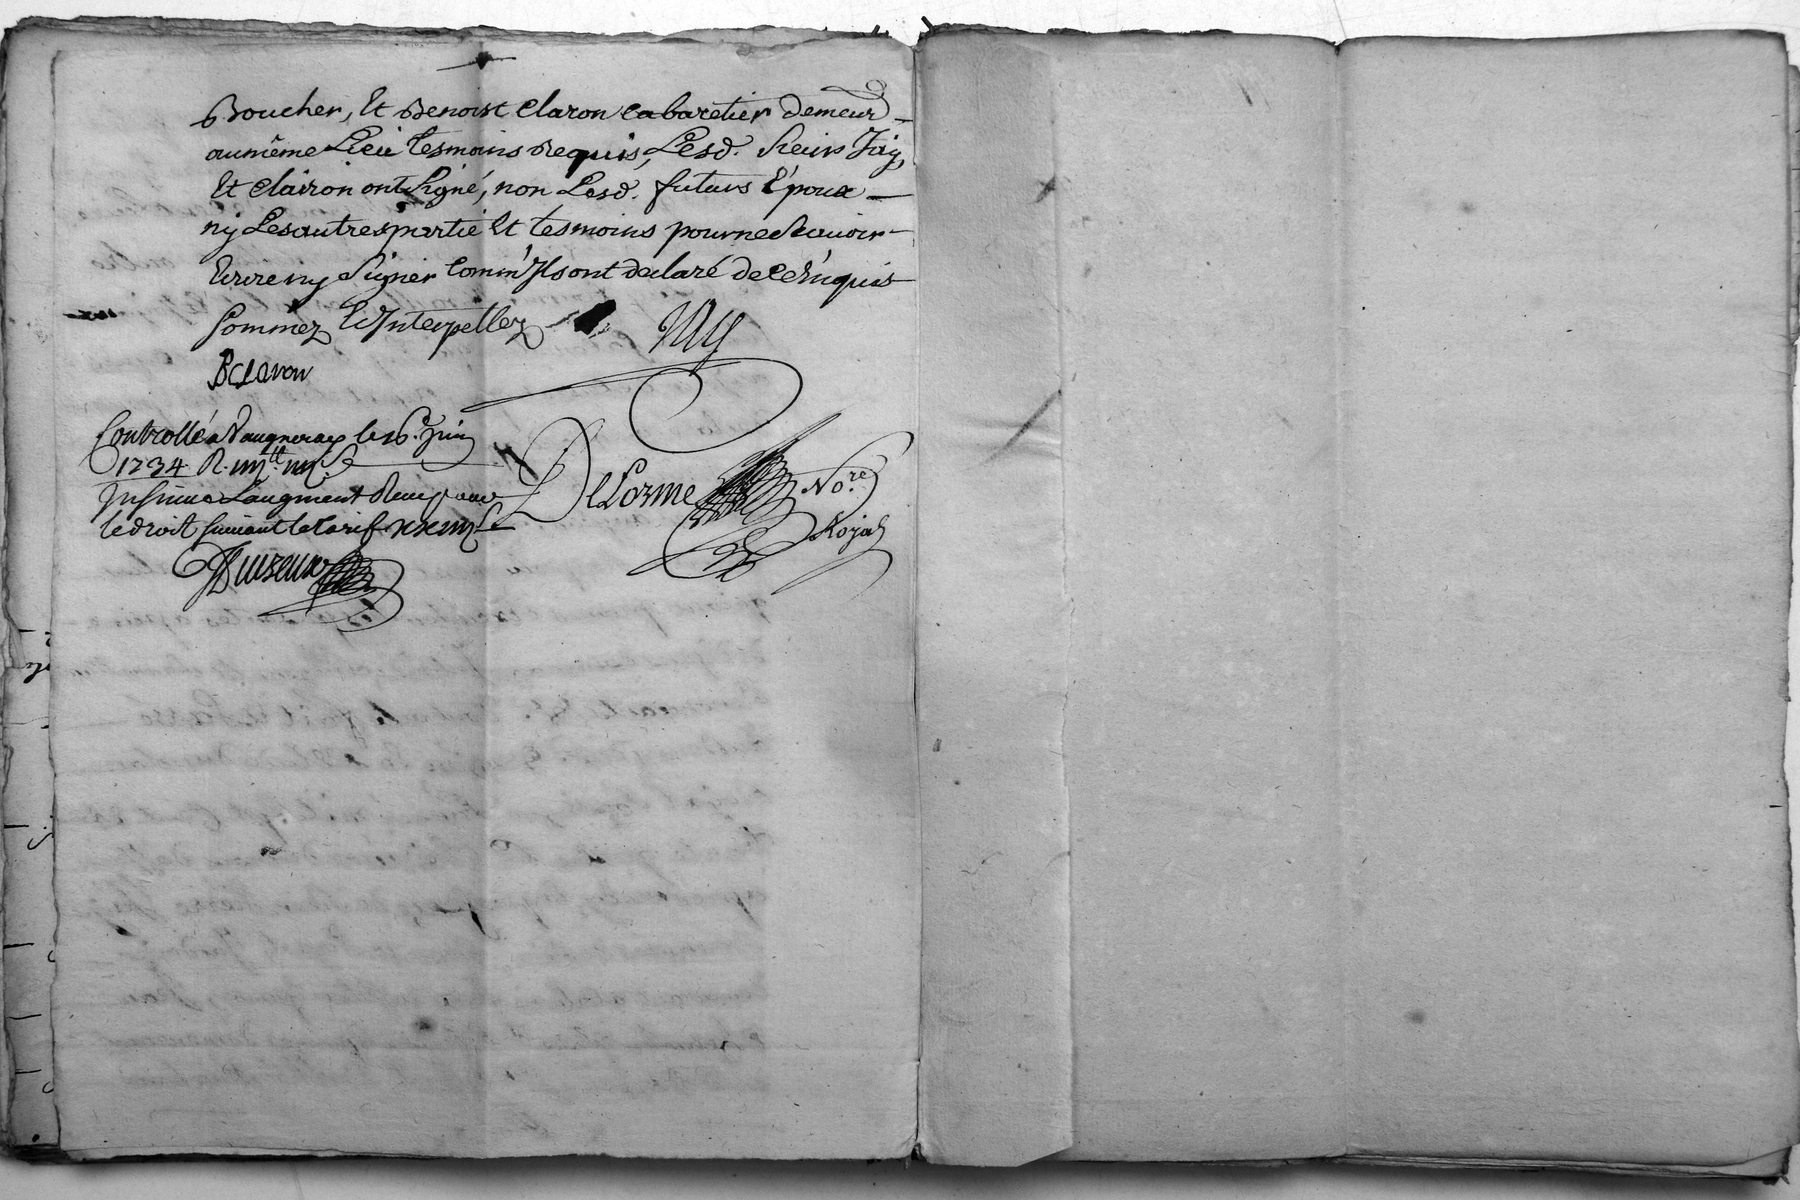 Boucher, Et Benoist Claron cabaretier demeur
au même Lieu tesmoins Requis, Lesd. Sieurs
Et Clairon ont signé, non Lesd. futurs Epoux
ny Les autres partie Et tesmoins pour ne Scavoir
Ecrire ny Signer Comm' Ils ont declaré de ce Enquis
Sommez Et Interpellez
BClaron
Controllé a Vaugneray le 16e. Juin
1734 R.
Laugment Reuy
le droit suiuant le tarif
DeLorme No.re
Royal